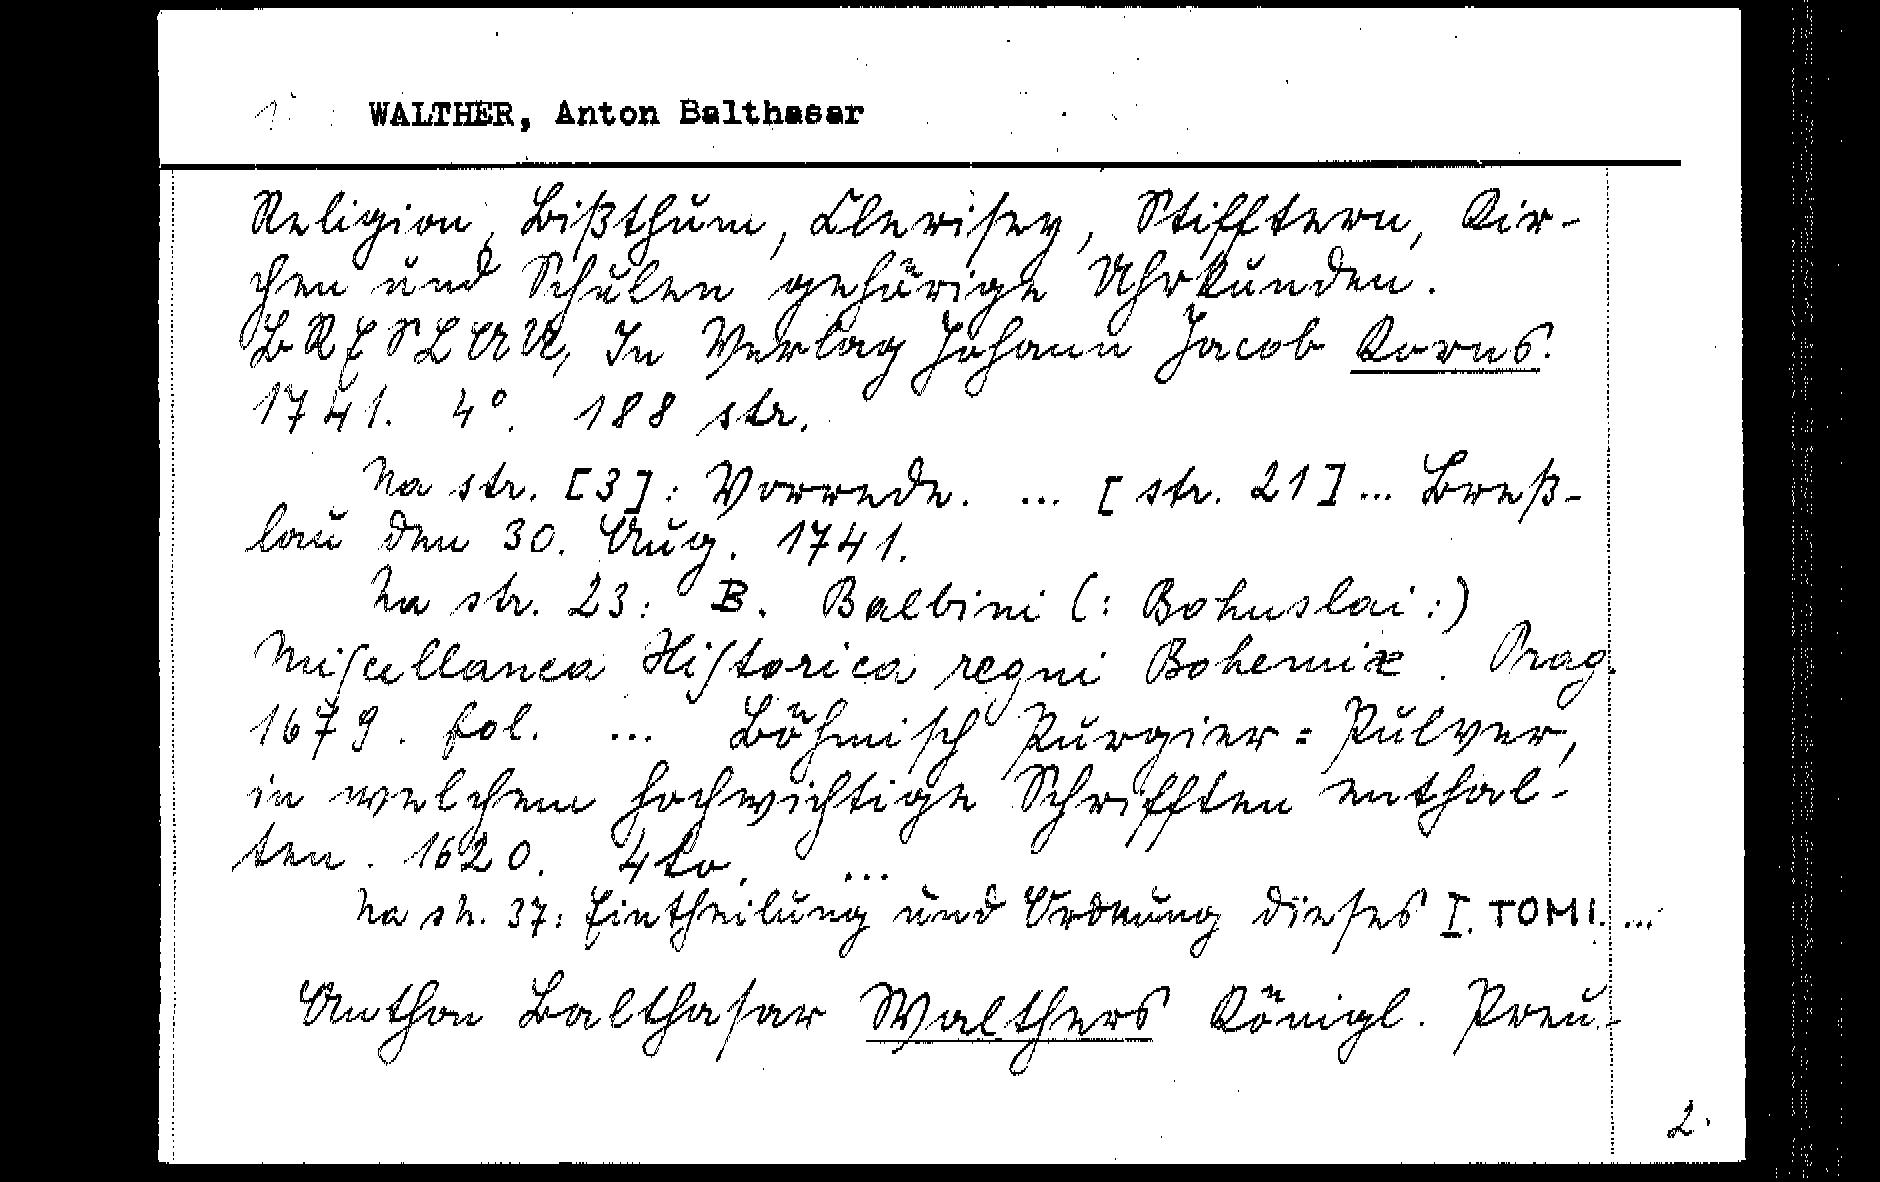 WALTHER, Anton Balthasar
Religion, Bißthum, Clerisey, Stifftern, Kir-
chen und Schulen gehörige Uhrkunden.
BRESLAU, In Verlag Johann Jacob Korns.
1741. 4°. 188 str.
Na str. [3]: Vorrede. ... [str. 21] ... Breß-
lau den 30. Aug. 1741.
Na str. 23: B. Balbini (: Bohuslai :)
Miſcellanea Hiſtorica regni Bohemiæ. Prag.
1679. fol. ... Böhmisch Purgier = Pulver,
in welchem hochwichtige Schrifften enthal-
ten. 1620. 4to. ...
Na str. 37: Eintheilung und Ordnung dieses I. TOMI. ...
Anthon Balthasar Walthers Königl. Preu-
2.